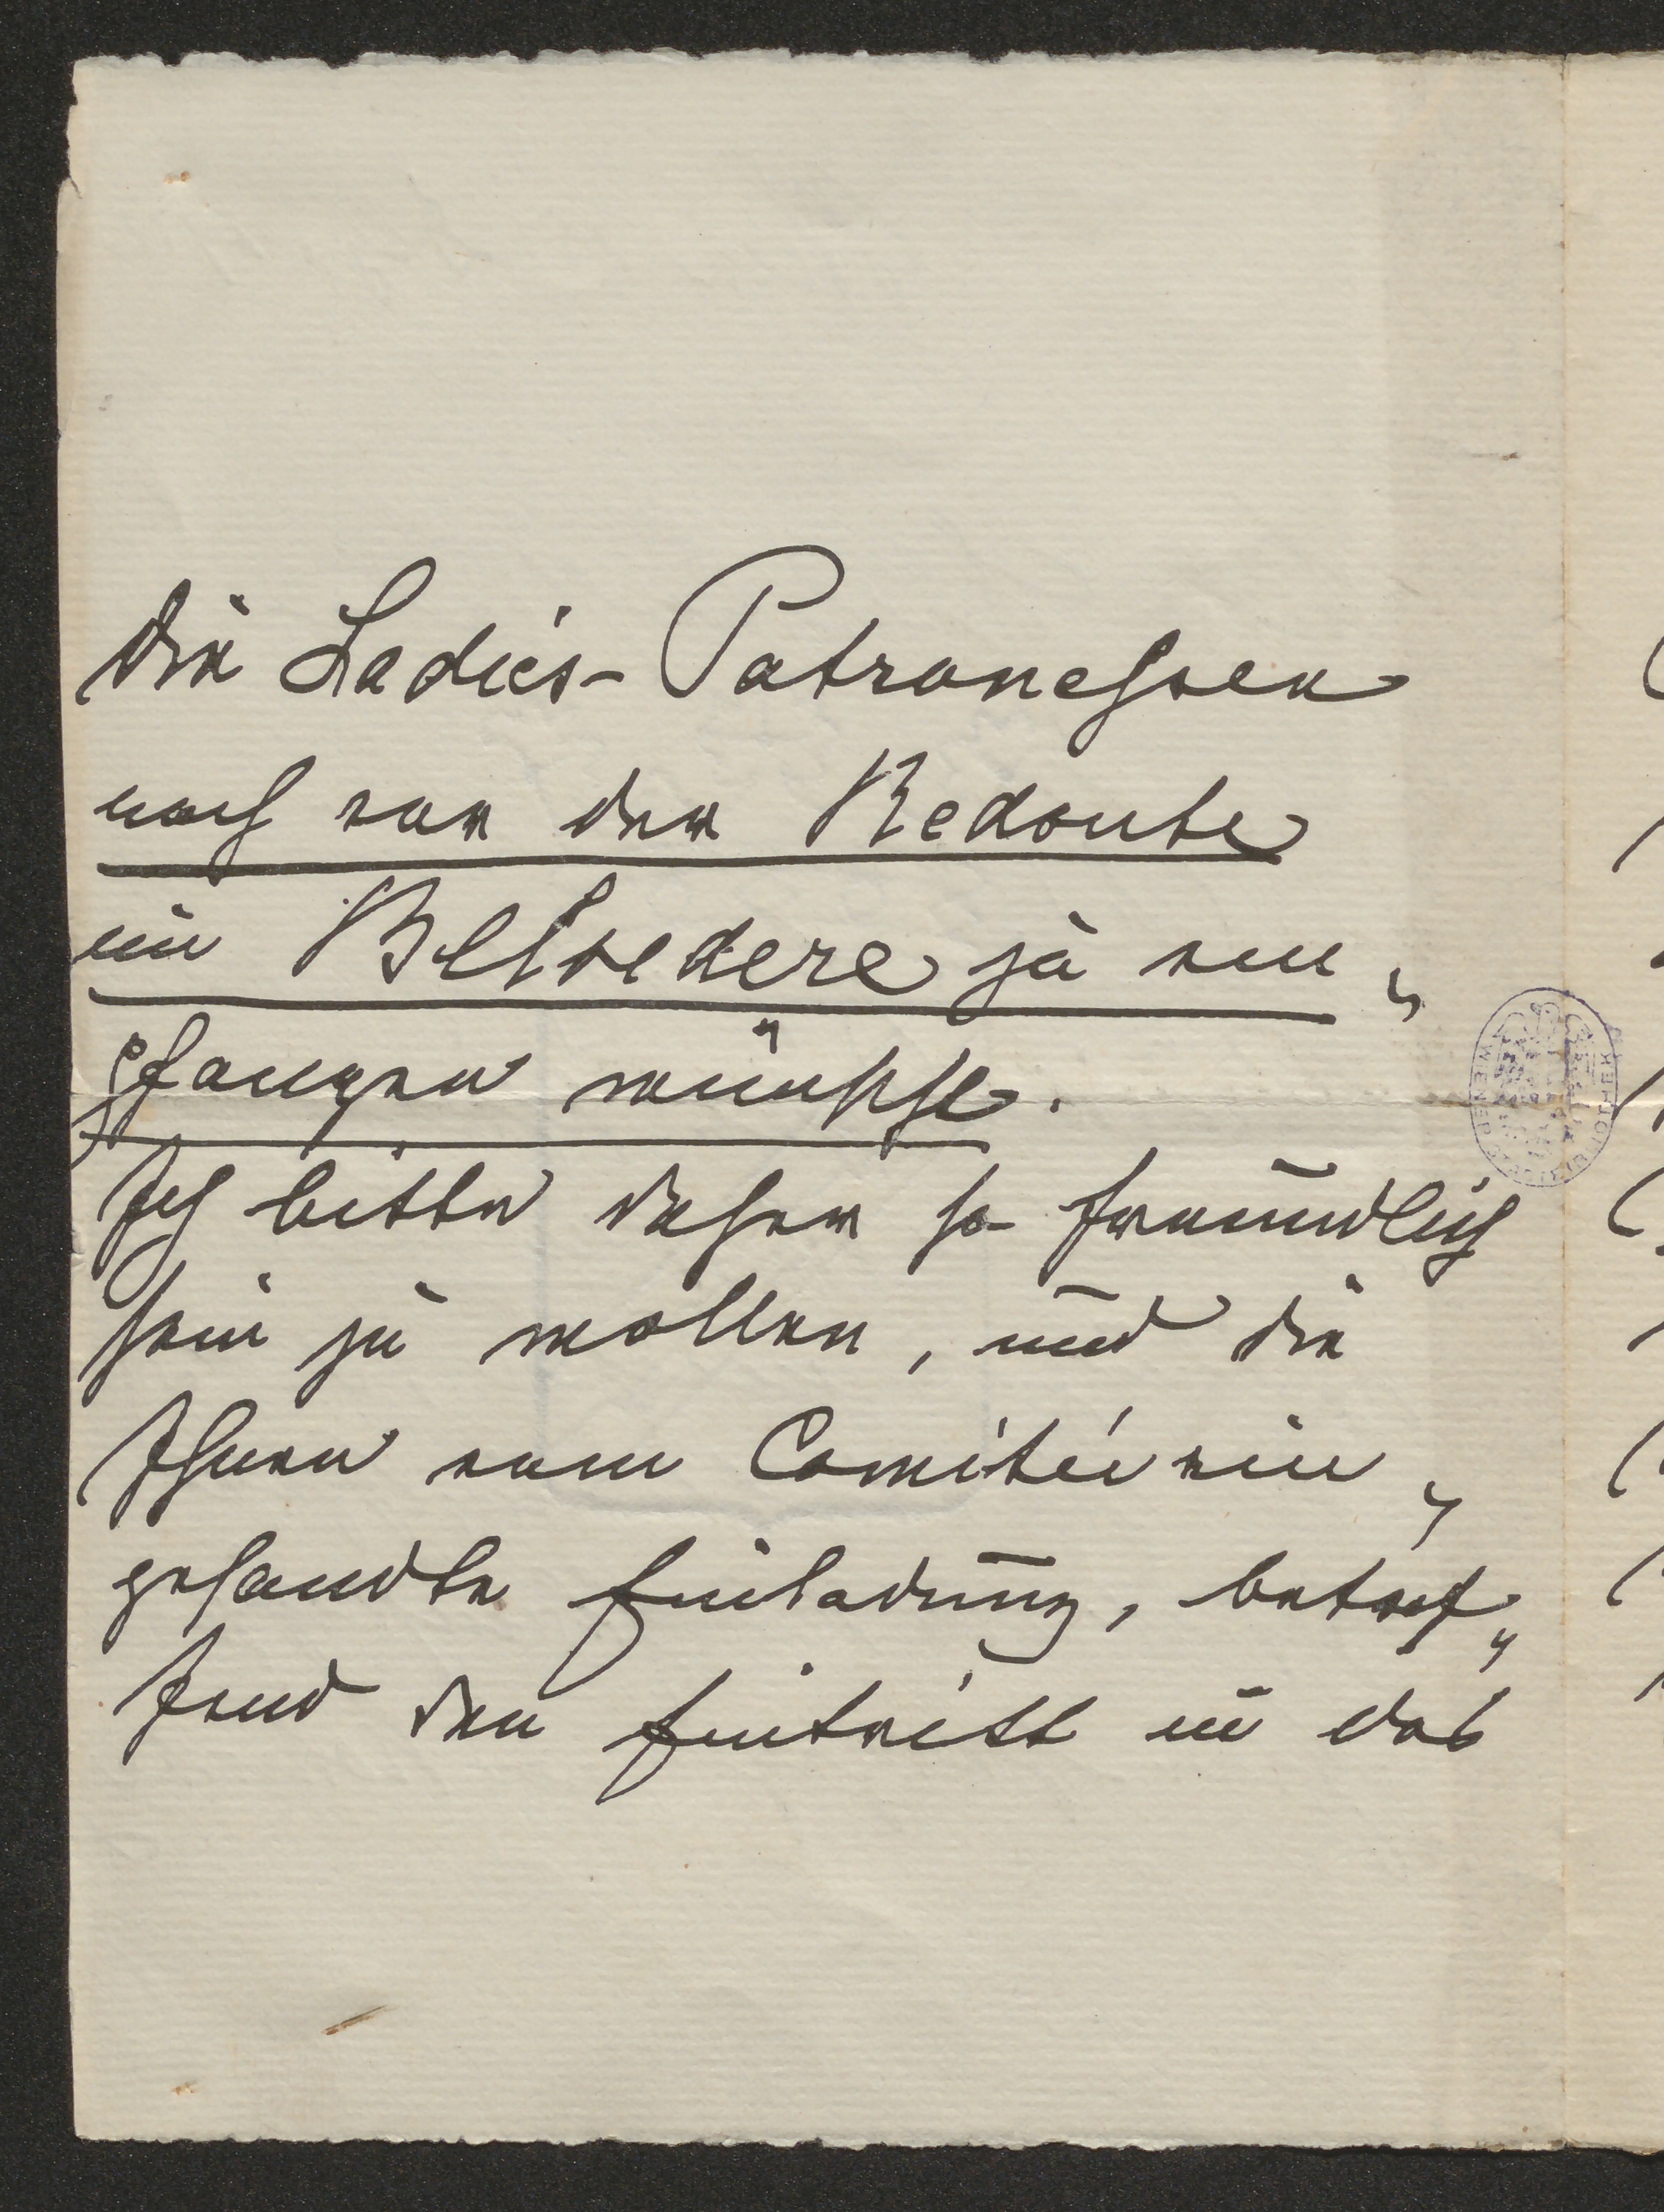 die Ladies-Patronessen
noch vor der Redoute
im Belvedere zu em„
pfangen wünscht.
Ich bitte daher so freundlich
sein zu wollen, und die
Ihnen vom Comitée ein„
gesandte Einladung, betref„
fend den Eintritt in das